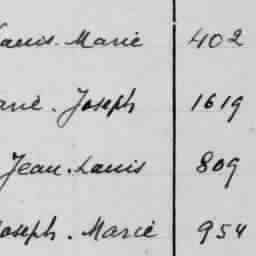 Louis. Marie 402
Marie. Joseph 1619
Jean. Louis 809
Joseph. Marie 954